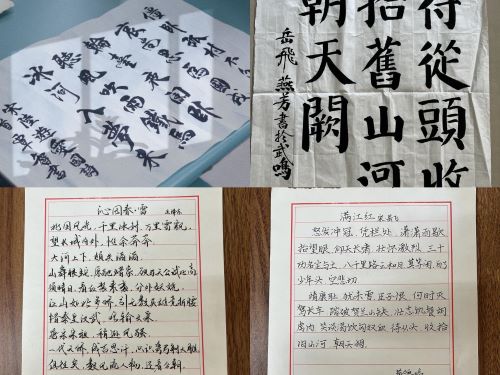 僵卧孤村不自哀
尚思为国戍轮台
夜阑卧听风吹雨
铁马冰河入梦来
待從頭收
拾舊山河
朝天闕
岳飛 燕芳書於武鳴
沁园春·雪
北国风光,千里冰封,万里雪飘。
望长城内外,惟余莽莽。
大河上下,顿失滔滔。
山舞银蛇,原驰蜡象,欲与天公试比高
须晴日,看红装素裹,分外妖娆。
江山如此多娇,引无数英雄竞折腰
惜秦皇汉武,略输文采
唐宗宋祖,稍逊风骚
一代天骄,成吉思汗,只识弯弓射大雕
俱往矣,数风流人物,还看今朝
满江红 宋岳飞
怒发冲冠,凭栏处,潇潇雨歇
抬望眼,仰天长啸,壮怀激烈,三十
功名尘与土,八千里路云和月,莫等闲,白了
少年头,空悲切
靖康耻,犹未雪,臣子恨,何时灭
驾长车 踏破贺兰山缺,壮志饥餐胡
虏肉,笑谈渴饮匈奴血,待从头,收拾
旧山河 朝天阙